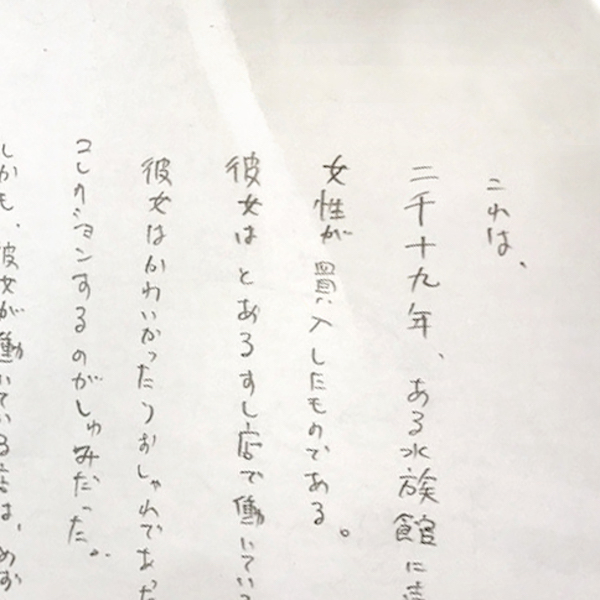 これは、
二千十九年、ある水族館に
女性が買入したものである。
彼女はとあるすし店で働いてい
彼女はかわいかったりおしゃれであった
コレクションするのがしゅみだった。
しかも、彼女が働いている店は、めず